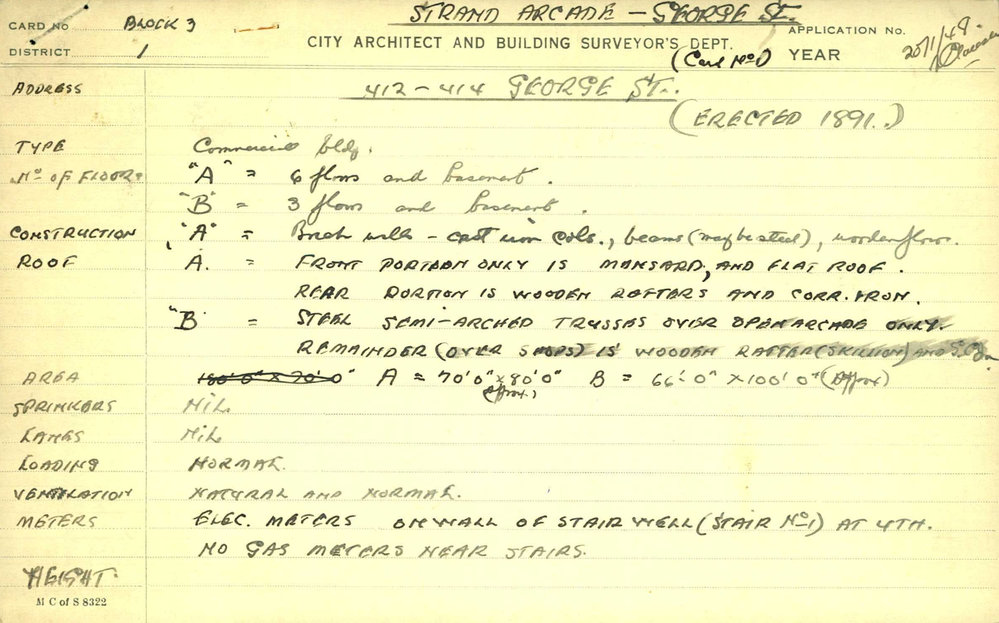 STRAND ARCADE - GEORGE ST.
CARD NO BLOCK 3
DISTRICT 1
CITY ARCHITECT AND BUILDING SURVEYOR'S DEPT.
(Card No 1)
APPLICATION No.
YEAR
20/1/48
ADDRESS 412-414 GEORGE ST.
(ERECTED 1891.)
TYPE Commercial bldg.
No OF FLOORS "A" = 6 floors and basement.
"B" = 3 floors and basement.
CONSTRUCTION "A" = Brick walls - cast iron cols., beams (maybe steel), wooden floors.
ROOF A. = FRONT PORTION ONLY IS MANSARD, AND FLAT ROOF.
REAR PORTION IS WOODEN RAFTERS AND CORR. IRON.
"B" = STEEL SEMI-ARCHED TRUSSES OVER OPEN ARCADE ONLY.
REMAINDER (OVER SHOPS) IS WOODEN RAFTER (SKILLION) AND
AREA 180'0" x 70'0" A = 70'0" x 80'0" B = 66'0" x 100'0" (Approx)
(Approx.)
SPRINKERS NIL
LANES NIL
LOADING NORMAL.
VENTILATION NATURAL AND NORMAL.
METERS ELEC. METERS ON WALL OF STAIR WELL (STAIR No 1) AT 4TH.
NO GAS METERS NEAR STAIRS.
HEIGHT.
M C of S 8322